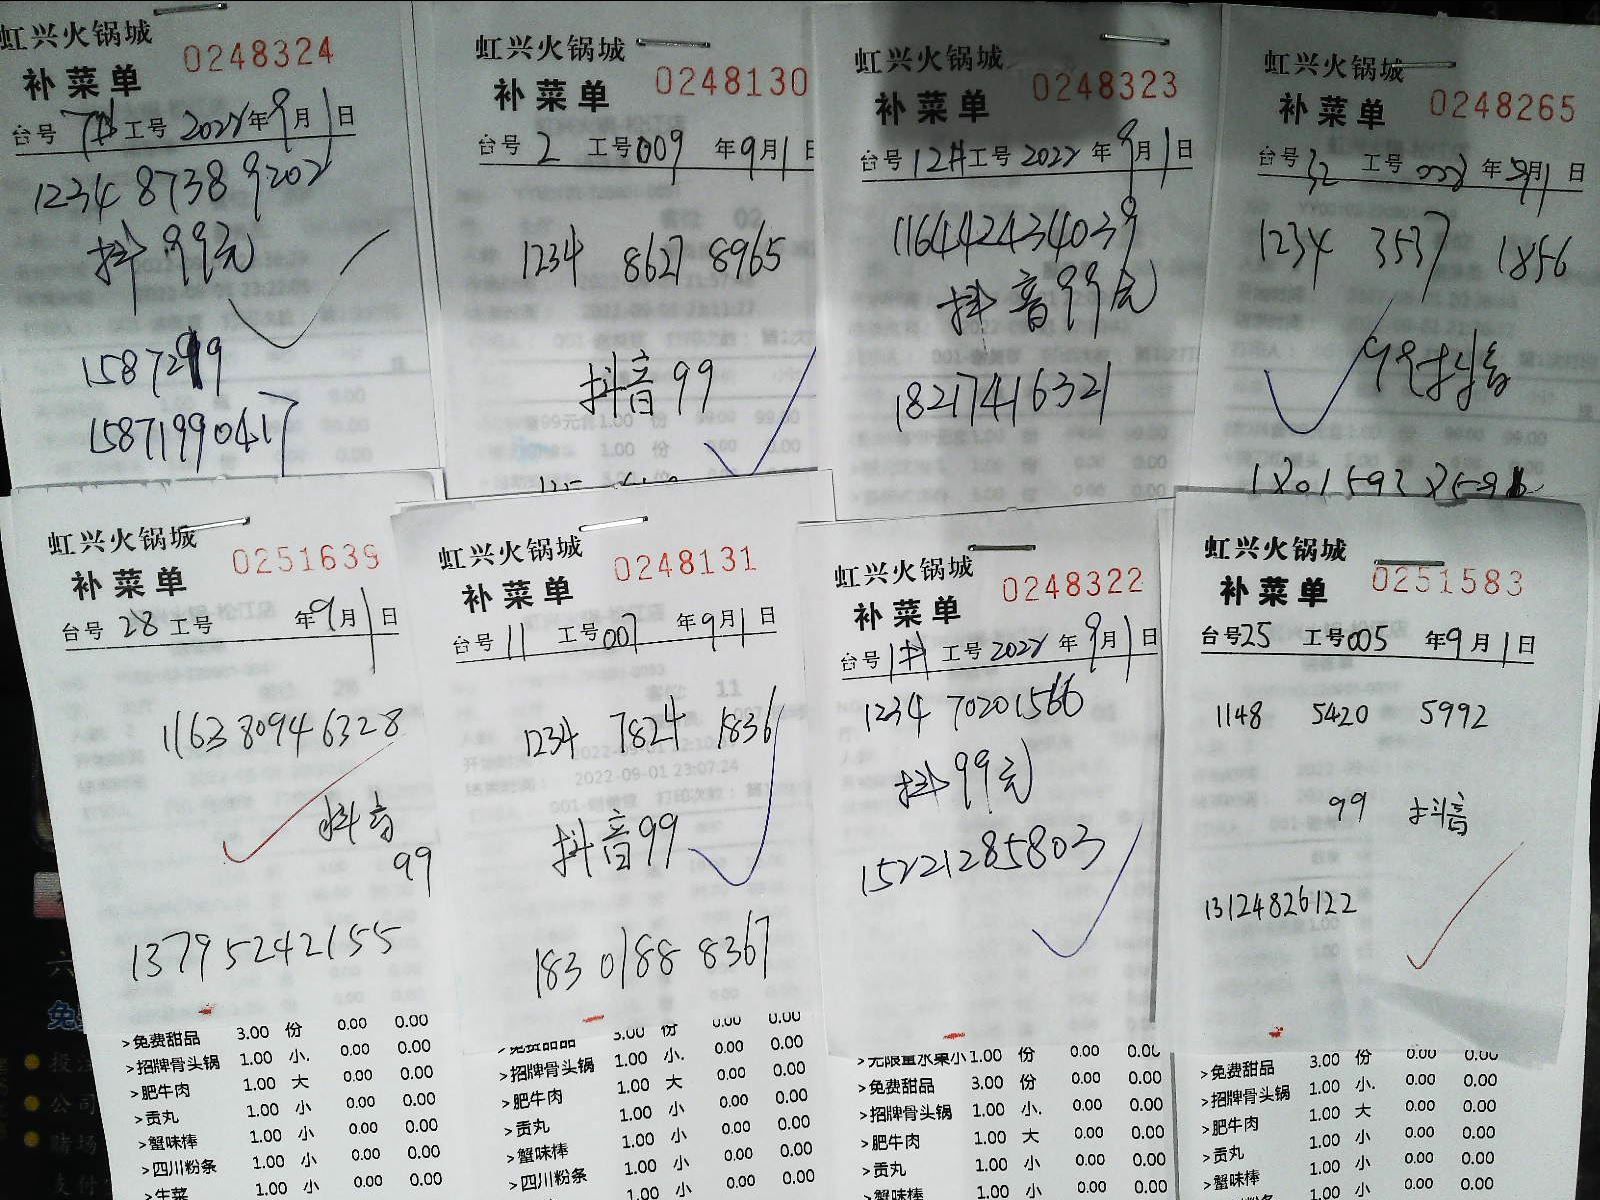 虹兴火锅城
0248324
补菜单
台号 7# 工号 2022年9月1日
1234 8738 9202
抖 99元
15871990417
虹兴火锅城
0248130
补菜单
台号 2 工号009 年9月1日
1234 8627 8965
抖音99
虹兴火锅城
0248323
补菜单
台号12#工号 2022 年9月1日
116442434039
抖音99元
18217416321
虹兴火锅城
0248265
补菜单
台号 32 工号 008 年9月1日
1234 3537 1856
99抖音
虹兴火锅城
0251639
补菜单
台号 28 工号 年9月1日
116380946328
抖音
99
13795242155
>免费甜品 3.00 份 0.00 0.00
>招牌骨头锅 1.00 小. 0.00 0.00
>肥牛肉 1.00 大 0.00 0.00
>贡丸 1.00 小 0.00 0.00
>蟹味棒 1.00 小 0.00 0.00
>四川粉条 1.00 小 0.00 0.00
>生菜 1.00 小 0.00 0.00
虹兴火锅城
0248131
补菜单
台号 11 工号007 年9月1日
1234 7824 1836
抖音99
183 0188 8367
>免费甜品 3.00 份 0.00 0.00
>招牌骨头锅 1.00 小. 0.00 0.00
>肥牛肉 1.00 大 0.00 0.00
>贡丸 1.00 小 0.00 0.00
>蟹味棒 1.00 小 0.00 0.00
>四川粉条 1.00 小 0.00 0.00
虹兴火锅城
0248322
补菜单
台号1# 工号 2022 年9月1日
1234 70201566
抖 99元
15221285803
>无限量水果小 1.00 份 0.00 0.00
>免费甜品 3.00 份 0.00 0.00
>招牌骨头锅 1.00 小. 0.00 0.00
>肥牛肉 1.00 大 0.00 0.00
>贡丸 1.00 小 0.00 0.00
>蟹味棒 1.00 小 0.00 0.00
虹兴火锅城
0251583
补菜单
台号25 工号005 年9月1日
1148 5420 5992
99 抖音
13124826122
>免费甜品 3.00 份 0.00 0.00
>招牌骨头锅 1.00 小. 0.00 0.00
>肥牛肉 1.00 大 0.00 0.00
>贡丸 1.00 小 0.00 0.00
>蟹味棒 1.00 小 0.00 0.00